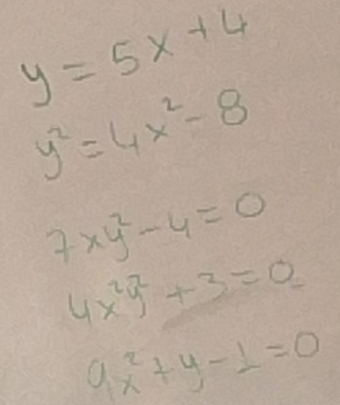 y = 5x + 4
y² = 4x² - 8
7xy² - 4 = 0
4x²y² + 3 = 0
9x² + y - 1 = 0